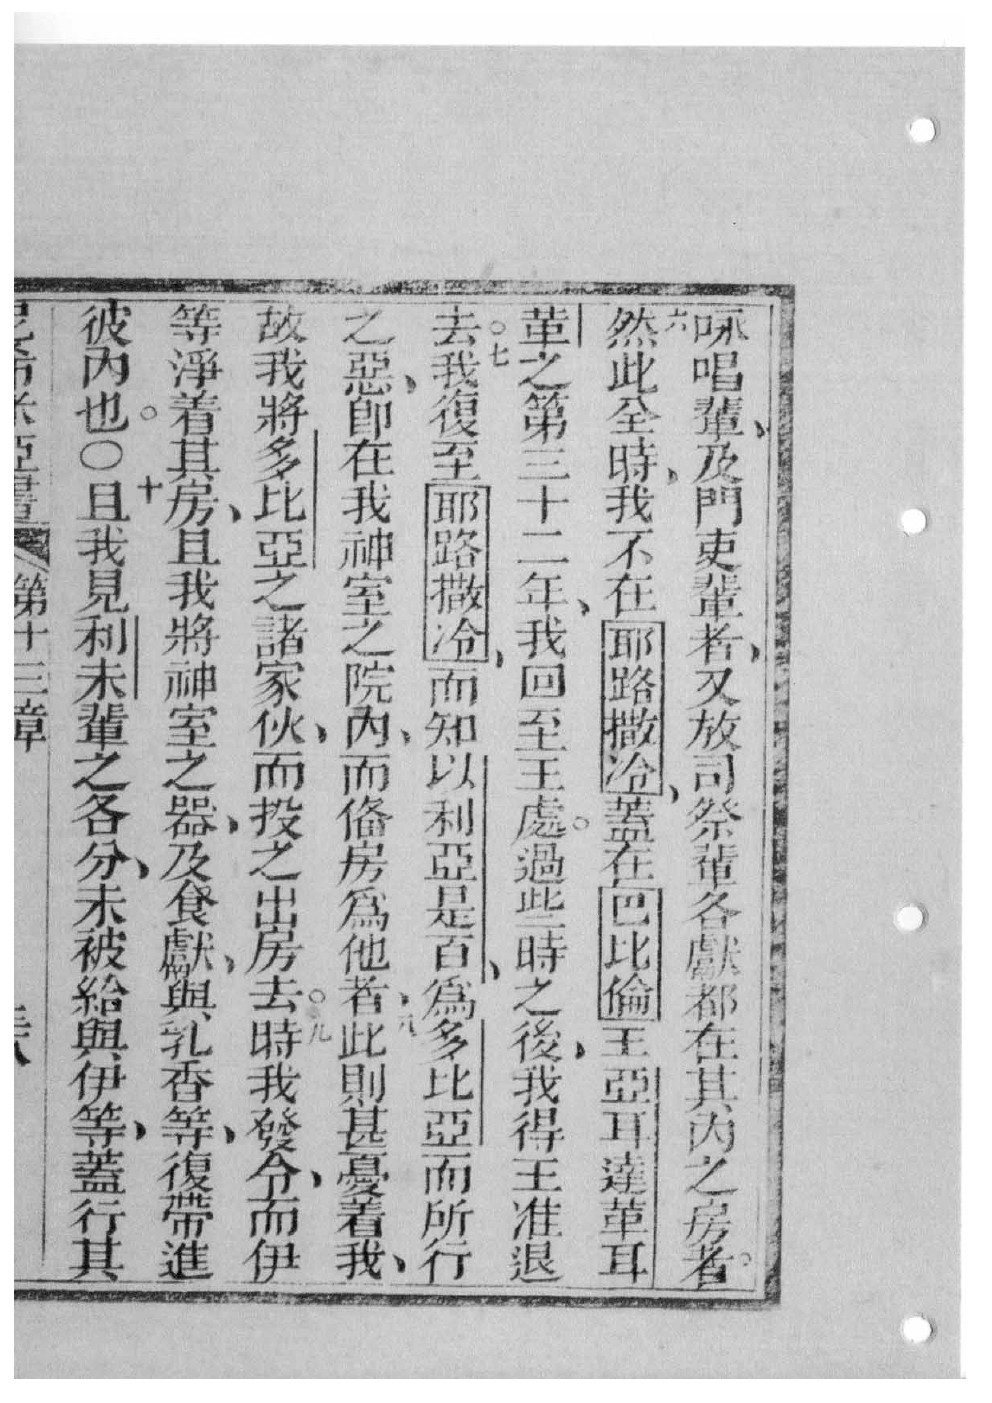 咏唱輩、及門吏輩者、又放司祭輩各獻都在其內之房者。
六然此全時、我不在耶路撒冷、蓋在巴比倫王亞耳達革耳
革之第三十二年、我回至王處。過些時之後、我得王准退
去。七我復至耶路撒冷、而知以利亞是百、爲多比亞而所行
之惡、卽在我神室之院內、而俻房爲他者、八此則甚憂着我、
故我將多比亞之諸家伙、而投之出房去。九時我發令、而伊
等淨着其房、且我將神室之器、及食獻、與乳香等、復帶進
彼內也。○十且我見利未輩之各分、未被給與伊等、蓋行其
尼希米亞書 第十三章 三八